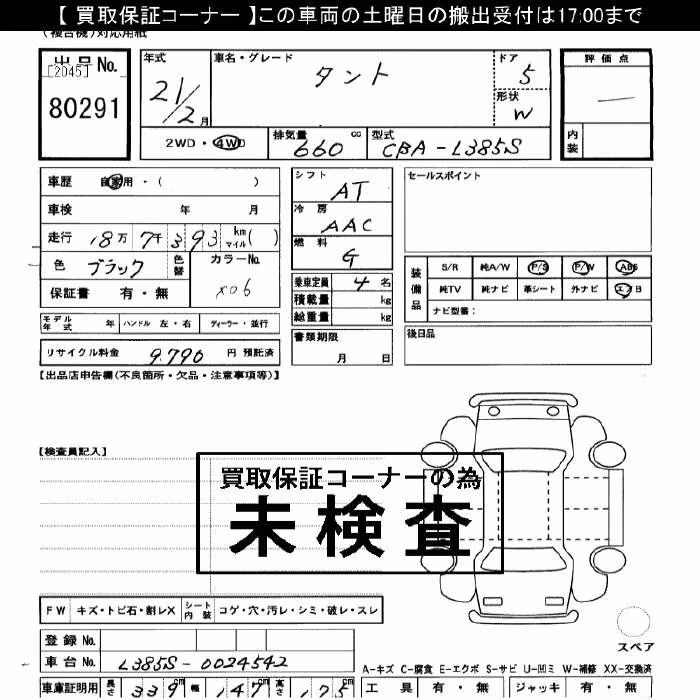 【 買取保証コーナー 】この車両の土曜日の搬出受付は17:00まで
（複合機）対応用紙
出品 No. [2045] 80291
年式 21/2月
車名・グレード タント
ドア 5
形状 W
評価点 —
内装
2WD・4WD
排気量 660 cc
型式 CBA-L385S
車歴 自家用・( )
車検 年 月
走行 18万 7千 393 km マイル ( )
色 ブラック 色替 カラーNo. X06
保証書 有・無
シフト AT
冷房 AAC
燃料 G
乗車定員 4 名
積載量 kg
総重量 kg
書類期限 月 日
セールスポイント
装備品 S/R 純A/W P/S P/W ABS
純TV 純ナビ 革シート 外ナビ エアB
ナビ型番：
後日品
モデル年式 年 ハンドル 左・右 ディーラー・並行
リサイクル料金 9,790 円 預託済
【出品店申告欄(不良箇所・欠品・注意事項等)】
【検査員記入】
買取保証コーナーの為
未検査
FW キズ・トビ石・割レX シート内装 コゲ・穴・汚レ・シミ・破レ・スレ
登録 No.
車台 No. L385S-0024542
スペア
A-キズ C-腐食 E-エクボ S-サビ U-凹ミ W-補修 XX-交換済
車庫証明用 長さ 339 cm 幅 147 cm 高さ 175 cm
工具 有・無 ジャッキ 有・無